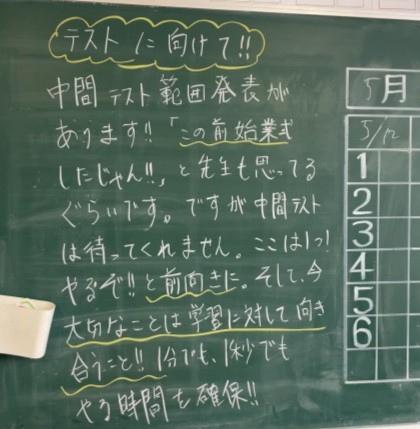 テストに向けて!!
中間テスト範囲発表が
あります!!「この前始業式
したじゃん!!」と先生も思ってる
ぐらいです。ですが中間テスト
は待ってくれません。ここは1つ!
やるぞ!!と前向きに。そして、今
大切なことは学習に対して向き
合うこと!! 1分でも、1秒でも
やる時間を確保!!
5月
1
2
3
4
5
6